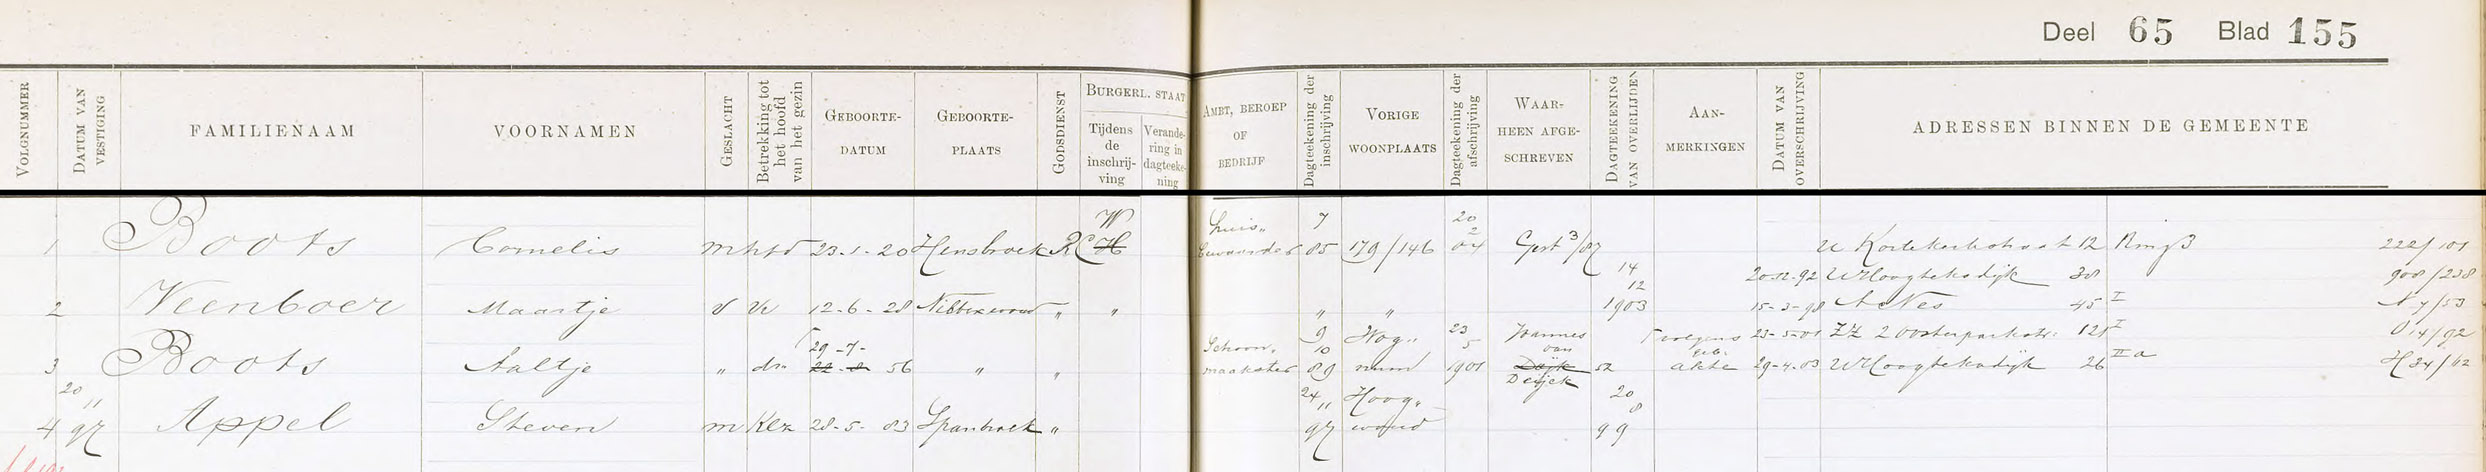 Deel 65 Blad 155
VOLGNUMMER
DATUM VAN VESTIGING
FAMILIENAAM
VOORNAMEN
GESLACHT
Betrekking tot het hoofd van het gezin
GEBOORTE-DATUM
GEBOORTE-PLAATS
GODSDIENST
BURGERL. STAAT
Tijdens de inschrij-ving
Verande-ring in dagteeke-ning
AMBT, BEROEP OF BEDRIJF
Dagteekening der inschrijving
VORIGE WOONPLAATS
Dagteekening der afschrijving
WAAR-HEEN AFGE-SCHREVEN
DAGTEEKENING VAN OVERLIJDEN
AAN-MERKINGEN
DATUM VAN OVERSCHRIJVING
ADRESSEN BINNEN DE GEMEENTE
1 Boots Cornelis m hfd 23-1-20 Hensbroek RC W H huis„ bewaarder 7 85 179/146 20 2 04 12 Ring 222/101
20-12-92 Hoogtekadijk 38 908/238
2 Veenboer Maartje v Ve 12-6-28 Nibbixwoud „ „ „ „ 14 12 1903 15-3-98 Nes 45 I 7/53
3 Boots Aaltje „ dr 29-7- 56 „ „ Schoon„ maakster 9 10 89 Wog„ num 23 5 1901 Wannes van Dijk Deijck 52 volgens geb. akte 23-5-01 ZZ 2 Oosterparkstr. 125 I 14/92
29-4-03 Hoogtekadijk 26 II a H 34/62
4 20 11 97 Appel Steven m Klz 28-5-83 Spanbroek „ 24 11 97 Hoog„ woud 20 8 99